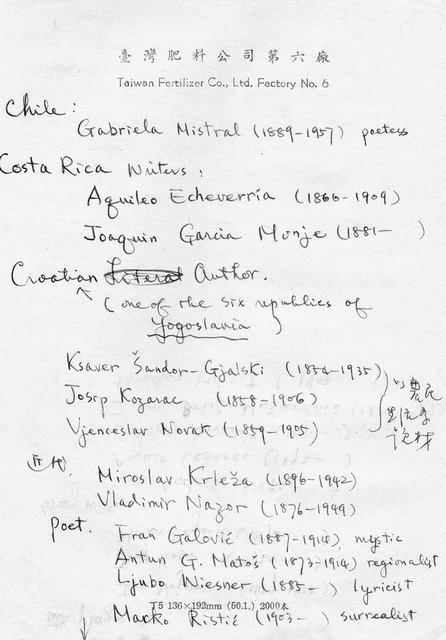 臺灣肥料公司第六廠
Taiwan Fertilizer Co., Ltd. Factory No. 6
Chile:
Gabriela Mistral (1889-1957) poetess
Costa Rica Writers:
Aquileo Echeverría (1866-1909)
Joaquin Garcia Monje (1881- )
Croatian Literat Author.
(one of the six republics of
Yogoslavia)
Ksaver Šandor-Gjalski (1854-1935)
Josip Kozarac (1858-1906)
Vjenceslav Novak (1859-1905)
以農民
生活為
近代
Miroslav Krleža (1896-1942)
Vladimir Nazor (1876-1949)
poet.
Fran Galović (1887-1914), mystic
Antun G. Matoš (1873-1914) regionalist
Ljubo Wiesner (1885- ) lyricist
T5 136×192mm (50.1.) 2000本
Marko Ristić (1903- ) surrealist